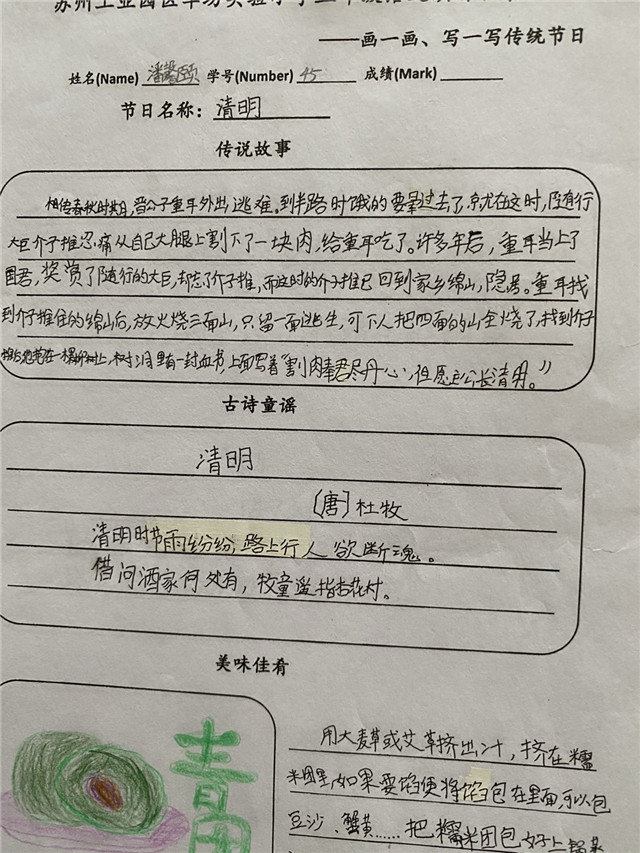 ——画一画、写一写传统节日
姓名(Name) 潘馨颐 学号(Number) 45 成绩(Mark)
节日名称：清明
传说故事
相传春秋时期,晋公子重耳外出逃难。到半路时饿的要晕过去了,就在这时,随行
大臣介子推忍痛从自己大腿上割下了一块肉,给重耳吃了。许多年后,重耳当上了
国君,奖赏了随行的大臣,却忘了介子推,而这时的介子推已回到家乡绵山,隐居。重耳找
到介子推住的绵山后,放火烧三面山,只留一面逃生,可下人把四面的山全烧了,找到介子
里有一封血书上面写着“割肉奉君尽丹心,但愿主公长清明。”
古诗童谣
清明
〔唐〕杜牧
清明时节雨纷纷,路上行人欲断魂。
借问酒家何处有，牧童遥指杏花村。
美味佳肴
用大麦草或艾草挤出汁，挤在糯
米团里,如果要馅便将馅包在里面,可以包
豆沙、蟹黄……把糯米团包好上锅蒸
青团